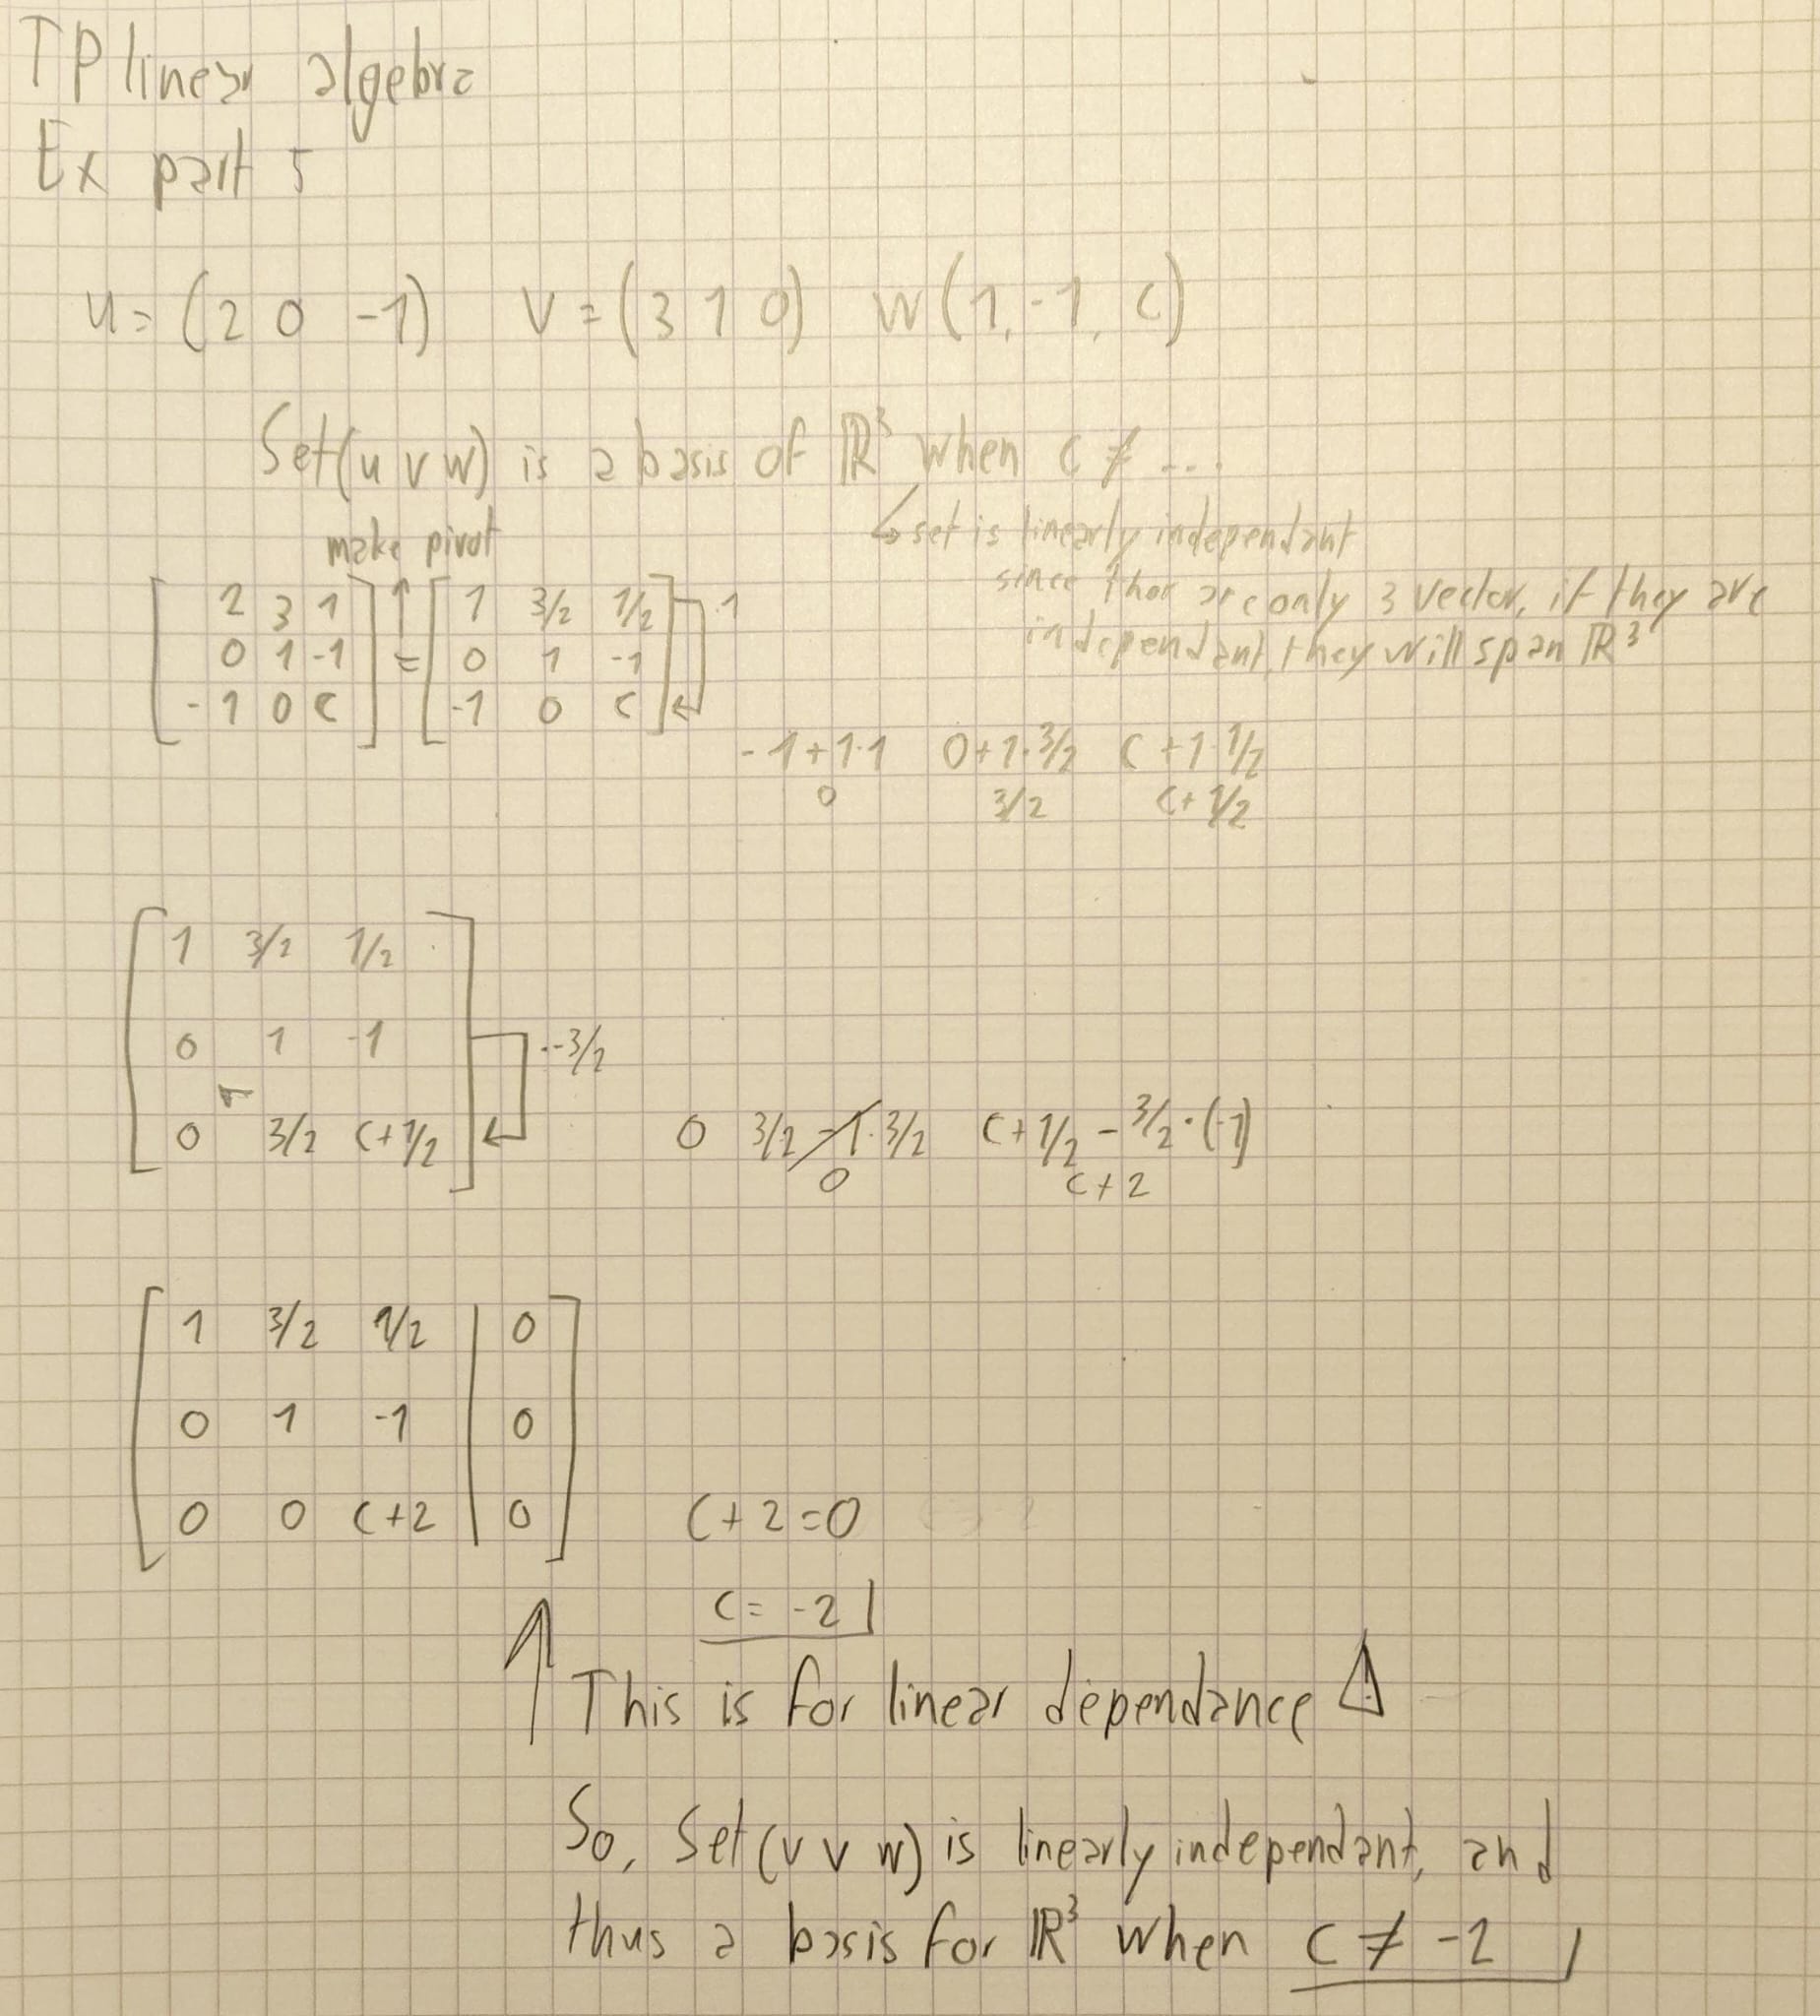 TP linear algebra
Ex part 5
u= (2 0 -1) V = (3 1 0) W(1, -1, C)
Set(u v w) is a basis of ℝ³ when C ≠ ...
↳ set is linearly independant
make pivot
since ther are only 3 vector, if they are
independant, they will span ℝ³
[ 2 3 1 ] ↑ [ 1 3/2 1/2 ] ·1
[ 0 1 -1 ] = [ 0 1 -1 ]
[ -1 0 C ] [ -1 0 C ] ↵
-1+1·1 0+1·3/2 C+1·1/2
0 3/2 C+1/2
[ 1 3/2 1/2 ]
[ 0 1 -1 ] ·-3/2
[ 0 3/2 C+1/2 ] ↵ 0 3/2-1·3/2 C+1/2-3/2·(-1)
0 C+2
[ 1 3/2 1/2 | 0 ]
[ 0 1 -1 | 0 ]
[ 0 0 C+2 | 0 ] C+2=0
C= -2
↑ This is for linear dependance ⚠
So, Set(v v w) is linearly independant, and
thus a basis for ℝ³ when C ≠ -2